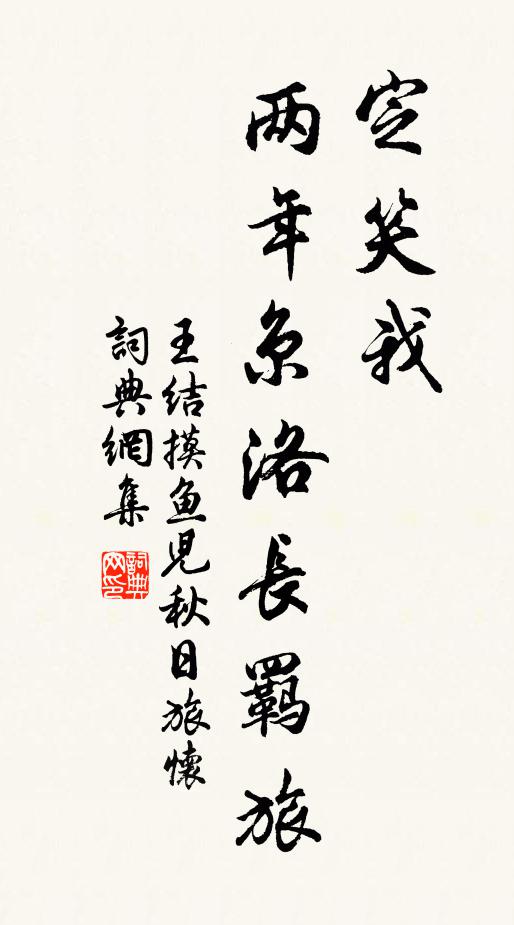 定笑我
两年京洛長羈旅
王结摸鱼児秋日旅懷
詞典網集
詞典網印